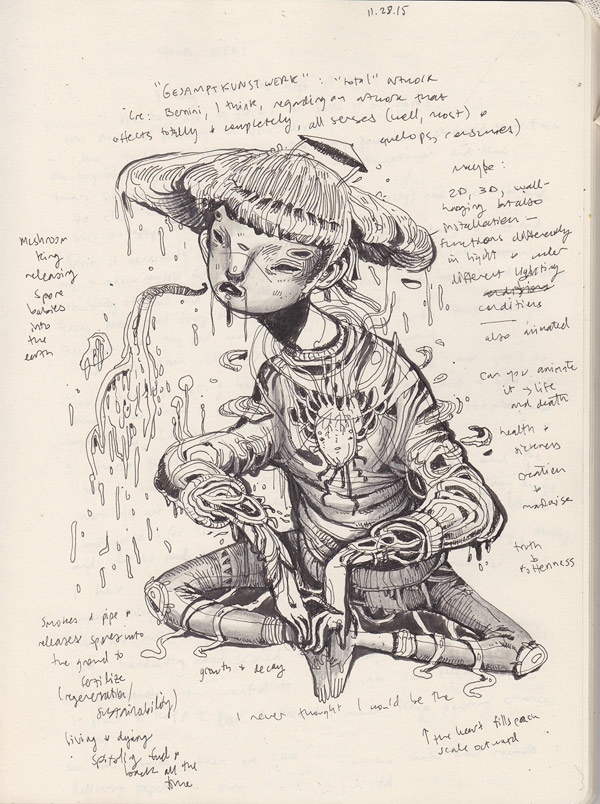 11.28.15
"GESAMPTKUNSTWERK" : "total" artwork
(re: Bernini, I think, regarding an artwork that
affects totally & completely, all senses (well, most) &
envelops, consumes)
maybe:
2D, 3D, wall-
hanging but also
installation —
functions differently
in light & under
different lighting
conditions
also animated
can you animate
it → life
and death
health &
sickness
creation
&
malaise
truth
&
rottenness
Mushroom
king
releasing
spore
babies
into
the
earth
Smokes a pipe &
releases spores into
the ground to
fertilize
(regeneration/
sustainability)
growth & decay
living & dying
back all the
time
I never thought I would be the
↑ the heart fills each
scale outward